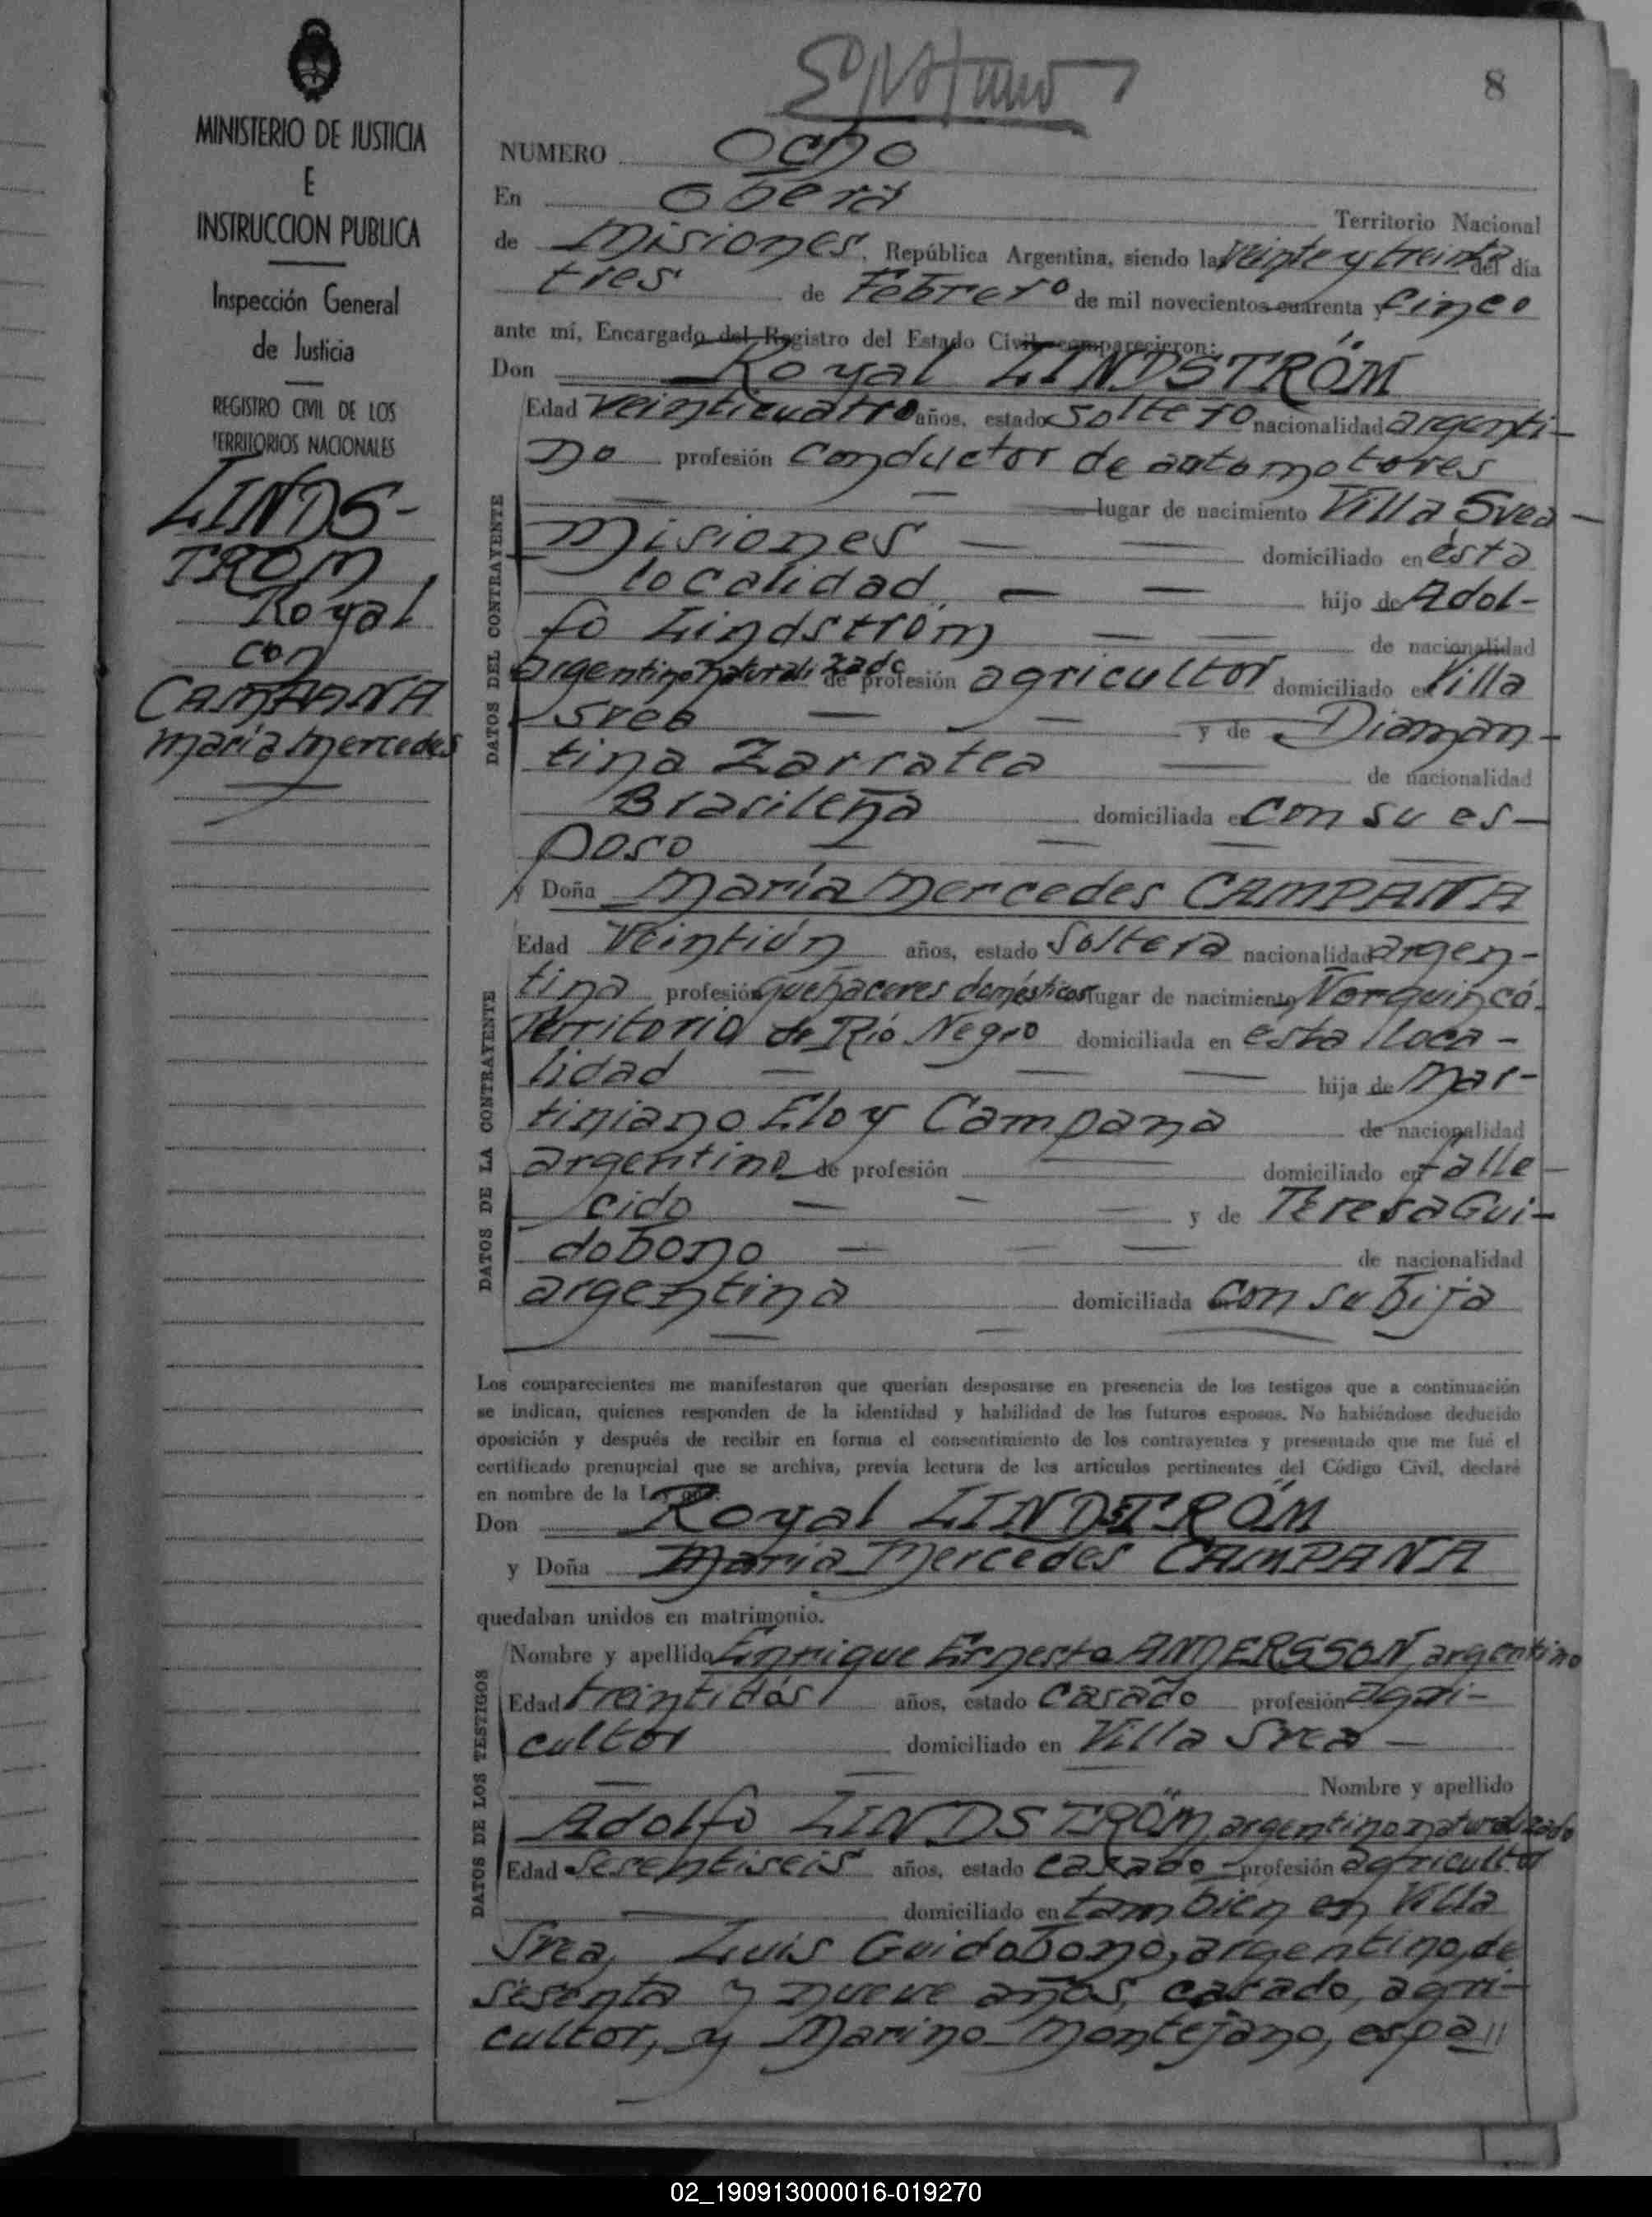 8
MINISTERIO DE JUSTICIA
E
INSTRUCCION PUBLICA
Inspección General
de Justicia
REGISTRO CIVIL DE LOS
TERRITORIOS NACIONALES
LINDS-
TROM
Royal
con
CAMPANA
María Mercedes
NUMERO Ocho
En Oberá Territorio Nacional
de Misiones, República Argentina, siendo las veinte y treinta del día
tres de Febrero de mil novecientos cuarenta y cinco
ante mí, Encargado del Registro del Estado Civil, comparecieron:
Don Royal LINDSTRÖM
DATOS DEL CONTRAYENTE
Edad veinticuatro años, estado soltero nacionalidad argenti-
no profesión conductor de automotores
lugar de nacimiento Villa Svea
Misiones domiciliado en ésta
localidad, hijo de Adol-
fo Lindström de nacionalidad
argentino naturalizado de profesión agricultor domiciliado en Villa
Svea y de Diaman-
tina Zarratea de nacionalidad
Brasileña domiciliada en con su es-
poso
y Doña María Mercedes CAMPANA
DATOS DE LA CONTRAYENTE
Edad Veintiún años, estado Soltera nacionalidad argen-
tina profesión quehaceres domésticos lugar de nacimiento Ñorquincó.
Territorio de Río Negro domiciliada en esta loca-
lidad hija de Mar-
tiniano Eloy Campana de nacionalidad
argentino de profesión domiciliado en falle-
cido y de Teresa Gui-
dobono de nacionalidad
argentina domiciliada con su hija
Los comparecientes me manifestaron que querían desposarse en presencia de los testigos que a continuación
se indican, quienes responden de la identidad y habilidad de los futuros esposos. No habiéndose deducido
oposición y después de recibir en forma el consentimiento de los contrayentes y presentado que me fué el
certificado prenupcial que se archiva, previa lectura de los artículos pertinentes del Código Civil, declaré
en nombre de la Ley que:
Don Royal LINDSTRÖM
y Doña María Mercedes CAMPANA
quedaban unidos en matrimonio.
DATOS DE LOS TESTIGOS
Nombre y apellido Enrique Ernesto ANDERSSON, argentino
Edad treintidós años, estado casado profesión agri-
cultor domiciliado en Villa Svea
Nombre y apellido
Adolfo LINDSTRÖM, argentino naturalizado
Edad sesentiseis años, estado casado profesión agricultor
domiciliado en también en Villa
Svea, Luis Guidobono, argentino, de
sesenta y nueve años, casado, agri-
cultor, y Marino Montejano, espa"
02_190913000016-019270